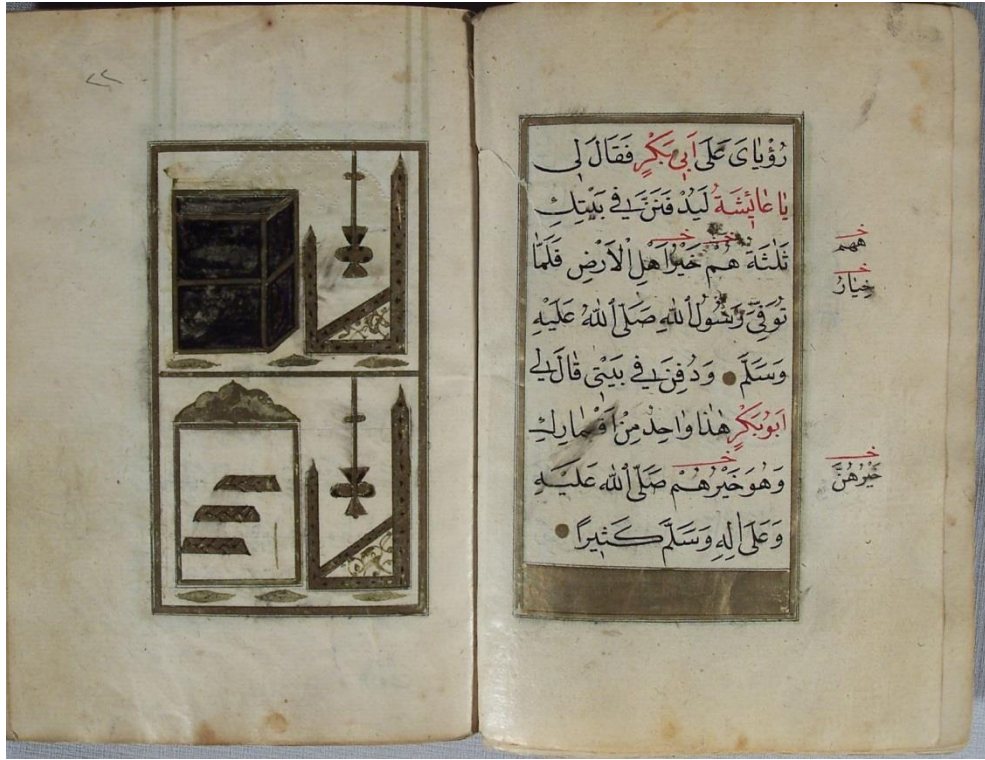 رُؤْيَايَ عَلَى اَبِي بَكْرٍ فَقَالَ لِي
يَا عَائِشَةُ لَيُدْفَنَنَّ فِي بَيْتِكِ
ثَلٰثَةٌ هُمْ خَيْرُ اَهْلِ الْاَرْضِ فَلَمَّا
تُوُفِّيَ رَسُولُ اللهِ صَلَّى اللهُ عَلَيْهِ
وَسَلَّمَ وَدُفِنَ فِي بَيْتِي قَالَ لِي
اَبُو بَكْرٍ هٰذَا وَاحِدٌ مِنْ اَقْمَارِكِ
وَهُوَ خَيْرُهُمْ صَلَّى اللهُ عَلَيْهِ
وَعَلَى اٰلِهِ وَسَلَّمَ كَثِيرًا
خِيَارُ
خَيْرُهُنَّ